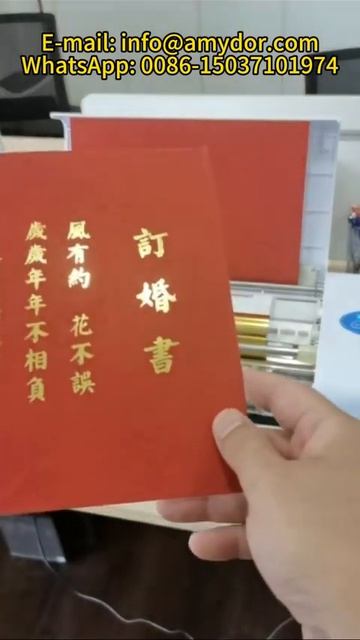 E-mail: info@amydor.com
WhatsApp: 0086-15037101974
訂婚書
風有約 花不誤
歲歲年年不相負